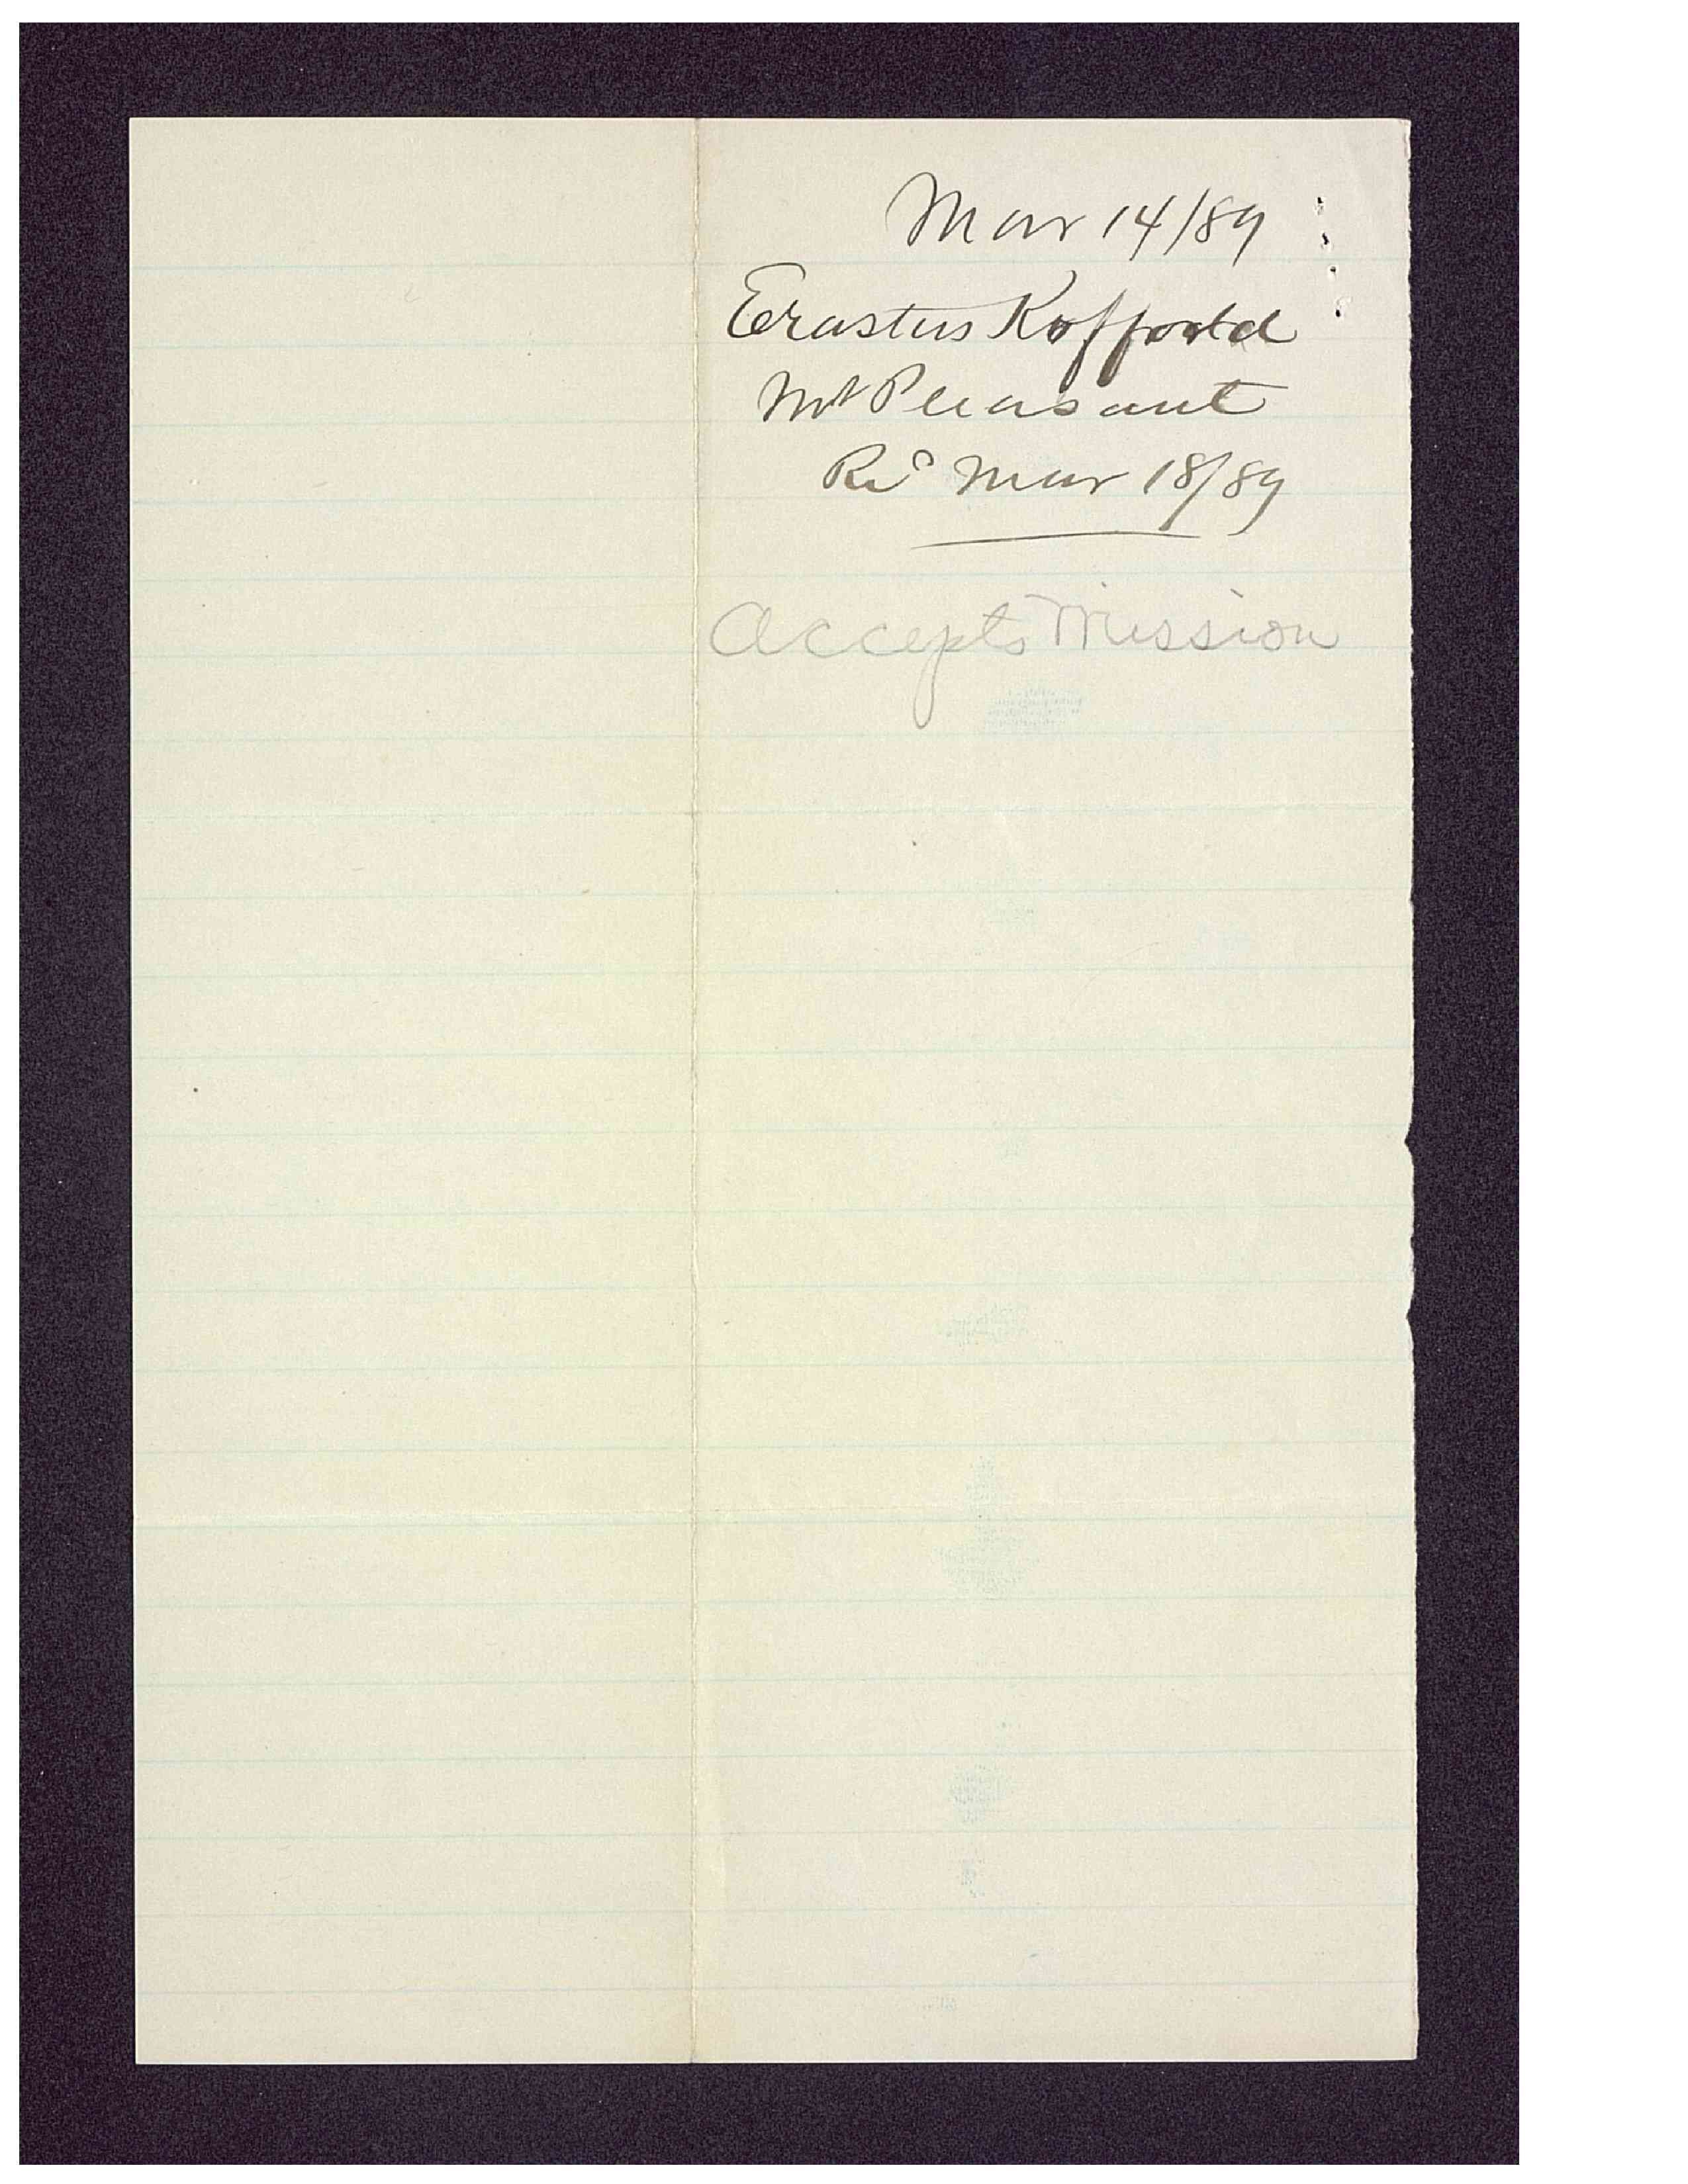 Mar 14/89
Erastus Koffodd
Mt Pleasant
Rec Mar 18/89
Accepts Mission